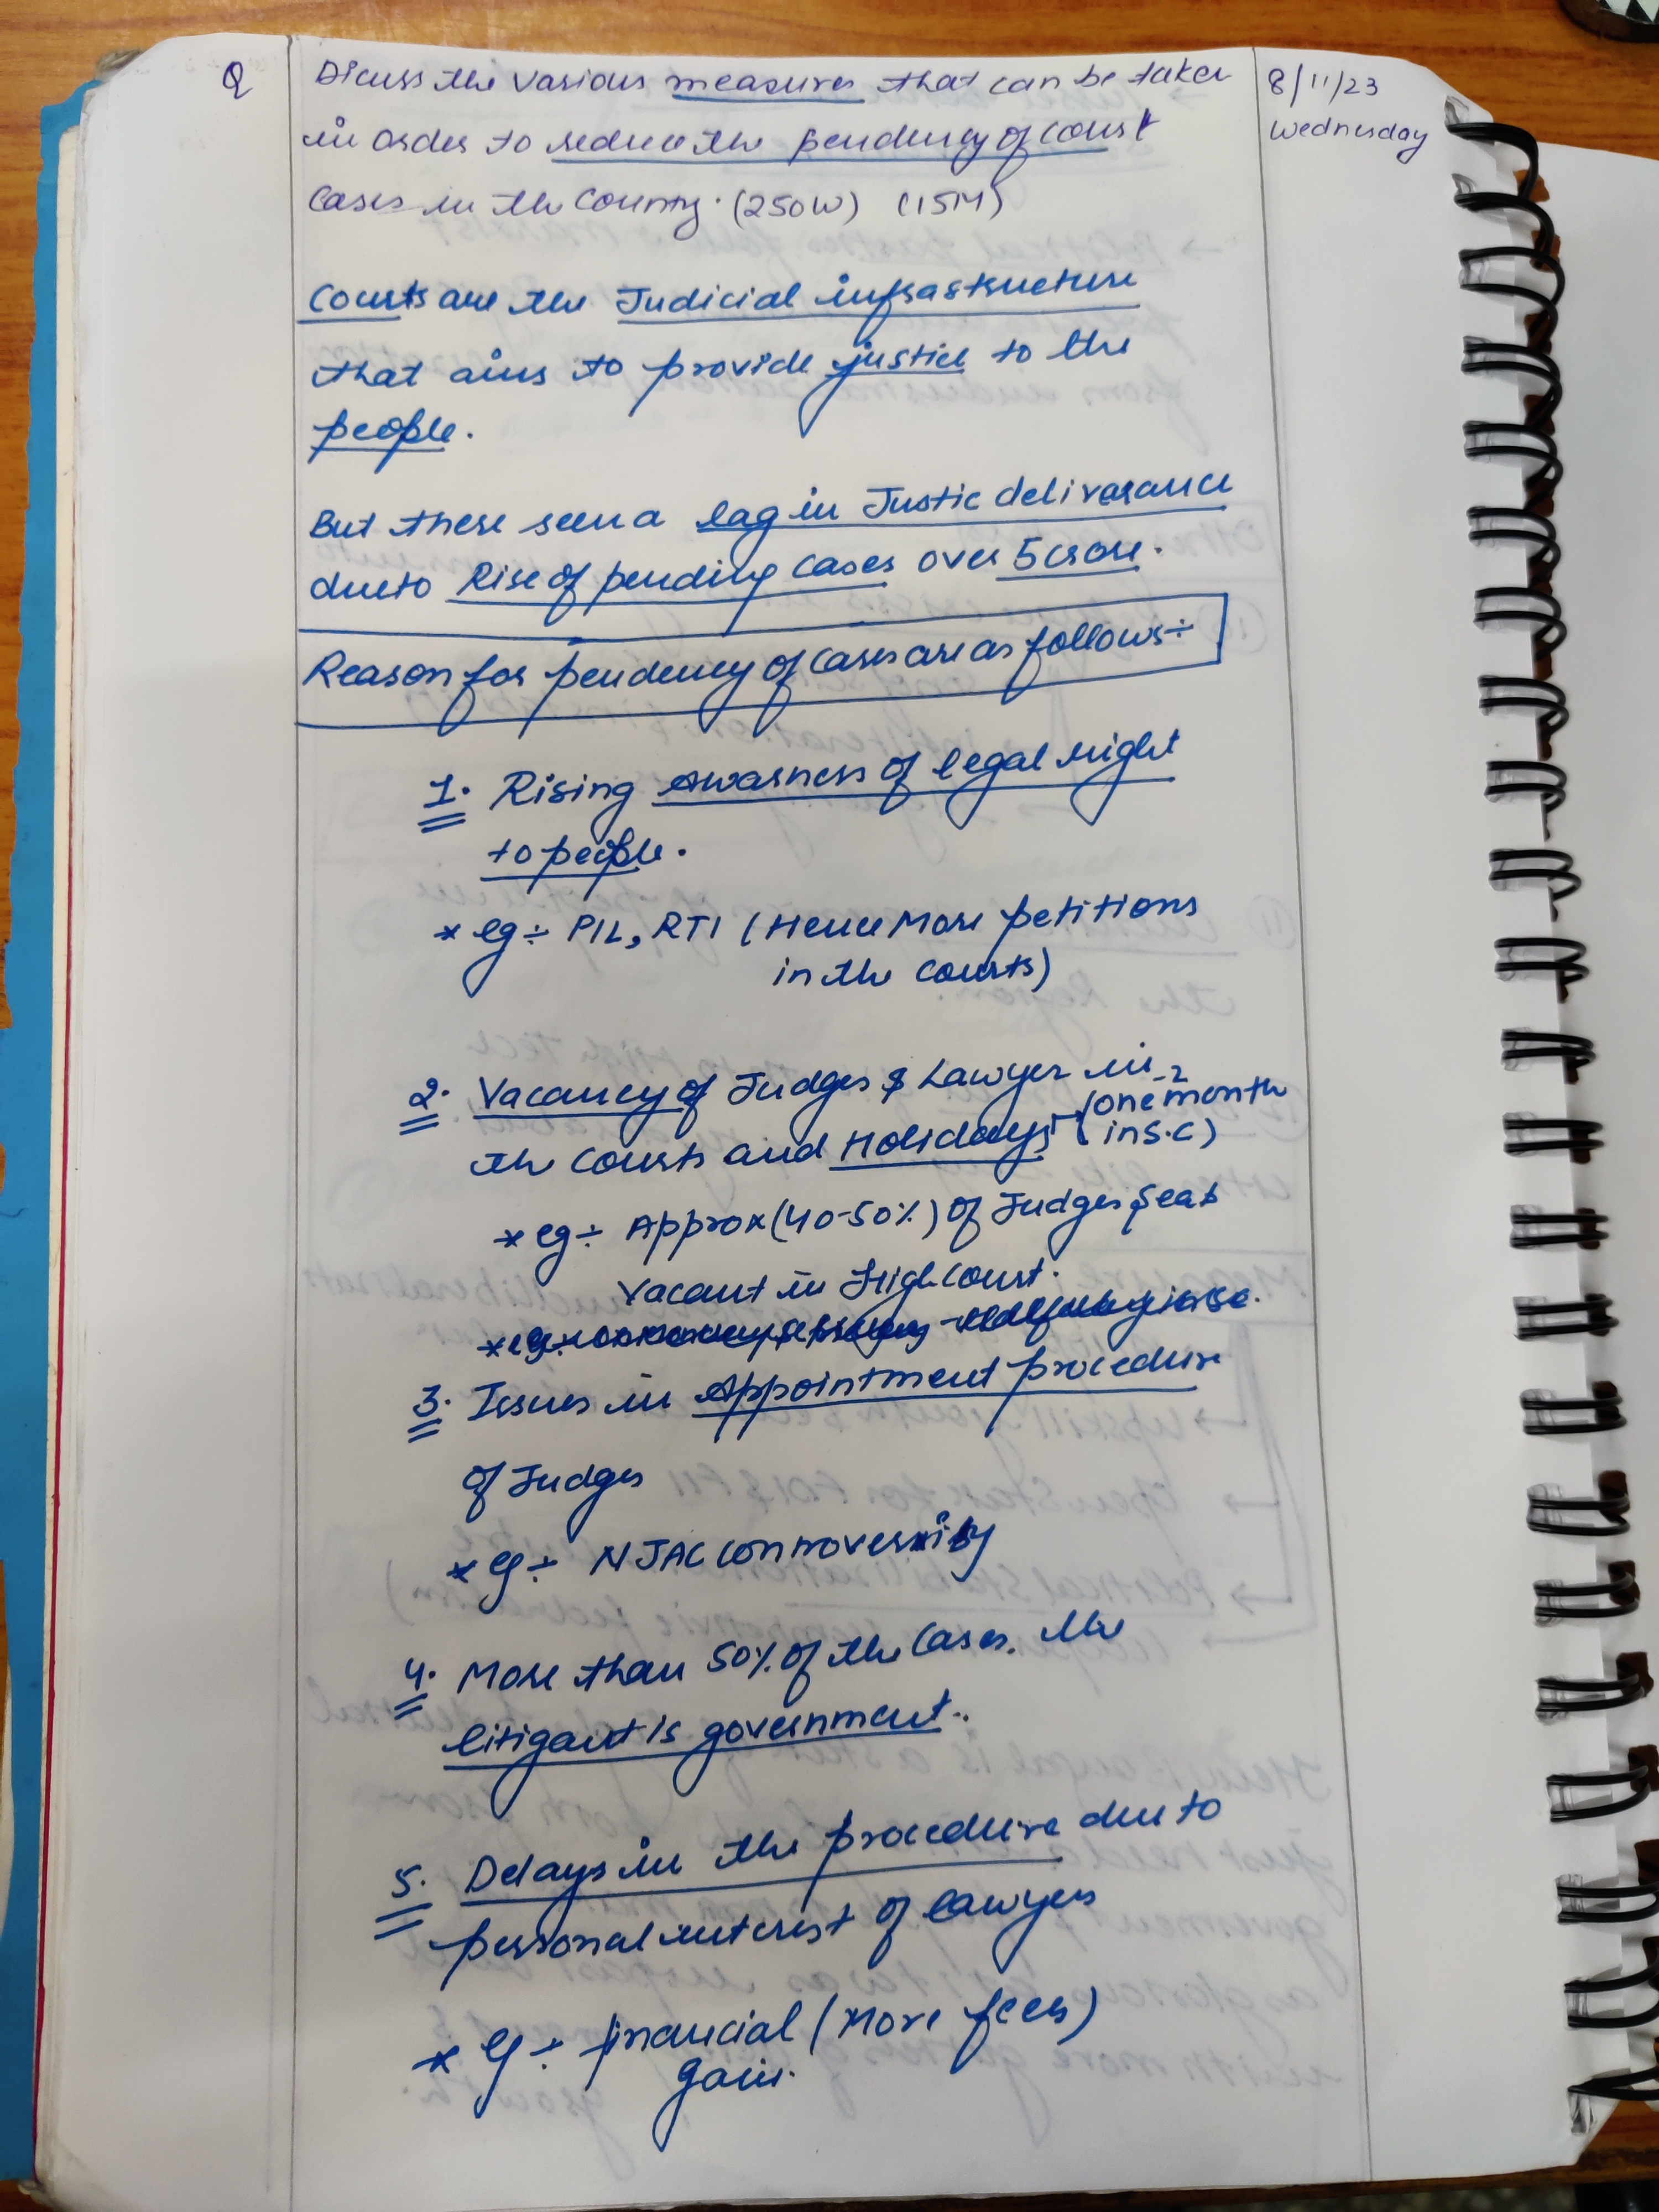 Q
Dicuss the various measures that can be taken
in order to reduce the pendency of court
Cases in the County. (250W) (15M)
8/11/23
Wednesday
Courts are the Judicial infrastructure
that aims to provide justice to the
people.
But there seen a lag in Justic deliverance
due to Rise of pending cases over 5 crore.
Reason for pendency of cases are as follows÷
1. Rising awarness of legal right
to people.
* eg÷ PIL, RTI (Hence More petitions
in the courts)
2. Vacancy of Judges & Lawyer in
the Courts and Holidays (one month
in S.C)
* eg÷ Approx (40-50%) of Judges seat
vacant in High Court.
3. Issues in Appointment procedure
of Judges
* eg÷ NJAC controversity
4. More than 50% of the cases, the
litigant is government.
5. Delays in the procedure due to
personal interest of lawyers
* eg÷ financial (More fees)
gain.